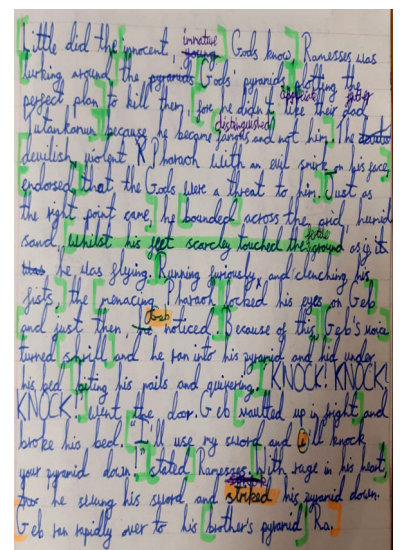 Little did the innocent, immature young Gods know, Ramesses was
lurking around the pyramids Gods' pyramids plotting the
perfect plan to kill them, for he didn't like their dad
Tutankamun because he became famous and not him. The
distinguished
devilish, violent Pharaoh with an evil smirk on his face,
endorsed that the Gods were a threat to him. Just as
the right point came, he bounded across the arid, humid
sand, whilst his feet scarcley touched the fertile ground as if it
he was flying. Running furiously, and clenching his
fists, the menacing Pharaoh locked his eyes on Geb
and just then, Geb noticed. Because of this, Geb's voice
turned shrill and he ran into his pyramid and hid under
his bed biting his nails and quivering. "KNOCK! KNOCK!
KNOCK!" Went the door. Geb vaulted up in fright and
broke his bed. "I'll use my sword and i'll knock
your pyramid down!" stated Ramesses. With rage in his heart,
he swung his sword and striked his pyramid down.
Geb ran rapidly over to his brother's pyramid Ra.